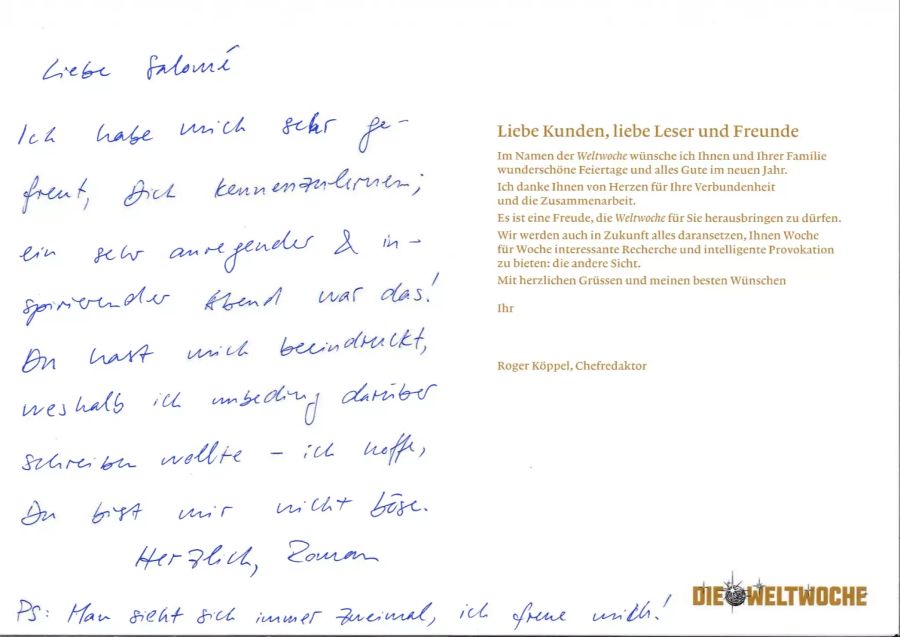 Liebe Salomé
Ich habe mich sehr ge-
freut, Dich kennenzulernen;
ein sehr anregender & in-
spirierender Abend war das!
Du hast mich beeindruckt,
weshalb ich unbeding darüber
schreiben wollte – ich hoffe,
Du bist mir nicht böse.
Herzlich, Roman
PS: Man sieht sich immer zweimal, ich freue mich!
Liebe Kunden, liebe Leser und Freunde
Im Namen der Weltwoche wünsche ich Ihnen und Ihrer Familie
wunderschöne Feiertage und alles Gute im neuen Jahr.
Ich danke Ihnen von Herzen für Ihre Verbundenheit
und die Zusammenarbeit.
Es ist eine Freude, die Weltwoche für Sie herausbringen zu dürfen.
Wir werden auch in Zukunft alles daransetzen, Ihnen Woche
für Woche interessante Recherche und intelligente Provokation
zu bieten: die andere Sicht.
Mit herzlichen Grüssen und meinen besten Wünschen
Ihr
Roger Köppel, Chefredaktor
DIE WELTWOCHE